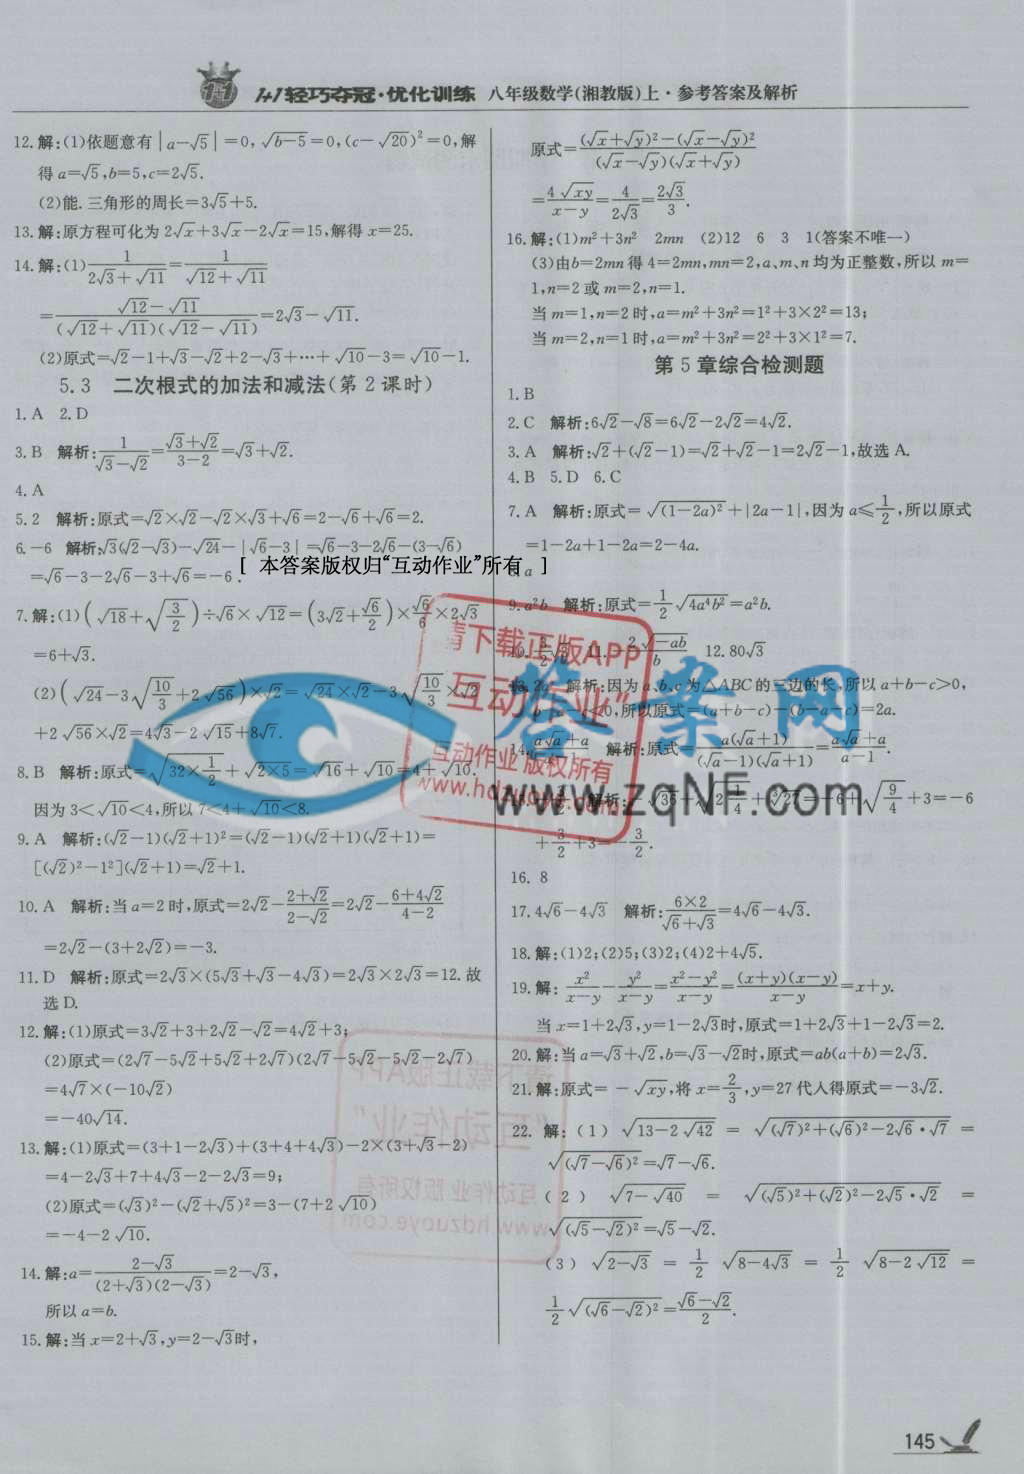 1+1轻巧夺冠·优化训练 八年级数学(湘教版)上·参考答案及解析
12.解:(1)依题意有|a-√5|=0,√(b-5)=0,(c-√20)²=0,解
得a=√5,b=5,c=2√5.
(2)能.三角形的周长=3√5+5.
13.解:原方程可化为2√x+3√x-2√x=15,解得x=25.
14.解:(1)1/(2√3+√11)=1/(√12+√11)
=(√12-√11)/((√12+√11)(√12-√11))=2√3-√11.
(2)原式=√2-1+√3-√2+2-√3+…+√10-3=√10-1.
5.3 二次根式的加法和减法(第2课时)
1.A 2.D
3.B 解析:1/(√3-√2)=(√3+√2)/(3-2)=√3+√2.
4.A
5.2 解析:原式=√2×√2-√2×√3+√6=2-√6+√6=2.
6.-6 解析:√3(√2-√3)-√24-|√6-3|=√6-3-2√6-(3-√6)
=√6-3-2√6-3+√6=-6.
7.解:(1)(√18+√(3/2))÷√6×√12=(3√2+√6/2)×√6/6×2√3
=6+√3.
(2)(√24-3√(10/3)+2√56)×√2=√24×√2-3√(10/3)×√2
+2√56×√2=4√3-2√15+8√7.
8.B 解析:原式=√(32×1/2)+√(2×5)=√16+√10=4+√10.
因为3<√10<4,所以7<4+√10<8.
9.A 解析:(√2-1)(√2+1)²=(√2-1)(√2+1)(√2+1)=
[(√2)²-1²](√2+1)=√2+1.
10.A 解析:当a=2时,原式=2√2-(2+√2)/(2-√2)=2√2-(6+4√2)/(4-2)
=2√2-(3+2√2)=-3.
11.D 解析:原式=2√3×(5√3+√3-4√3)=2√3×2√3=12.故
选D.
12.解:(1)原式=3√2+3+2√2-√2=4√2+3;
(2)原式=(2√7-5√2+5√2+2√7)(2√7-5√2-5√2-2√7)
=4√7×(-10√2)
=-40√14.
13.解:(1)原式=(3+1-2√3)+(3+4+4√3)-2×(3+√3-2)
=4-2√3+7+4√3-2-2√3=9;
(2)原式=(√3)²-(√2+√5)²=3-(7+2√10)
=-4-2√10.
14.解:a=(2-√3)/((2+√3)(2-√3))=2-√3,
所以a=b.
15.解:当x=2+√3,y=2-√3时,
原式=((√x+√y)²-(√x-√y)²)/((√x-√y)(√x+√y))
=4√xy/(x-y)=4/(2√3)=2√3/3.
16.解:(1)m²+3n² 2mn (2)12 6 3 1(答案不唯一)
(3)由b=2mn得4=2mn,mn=2,a、m、n均为正整数,所以m=
1,n=2或m=2,n=1.
当m=1,n=2时,a=m²+3n²=1²+3×2²=13;
当m=2,n=1时,a=m²+3n²=2²+3×1²=7.
第5章综合检测题
1.B
2.C 解析:6√2-√8=6√2-2√2=4√2.
3.A 解析:√2+(√2-1)=√2+√2-1=2√2-1,故选A.
4.B 5.D 6.C
7.A 解析:原式=√((1-2a)²)+|2a-1|,因为a≤1/2,所以原式
=1-2a+1-2a=2-4a.
[ 本答案版权归“互动作业”所有 ]
a
9.a²b 解析:原式=1/2√(4a⁴b²)=a²b.
12.80√3
13.2a 解析:因为a、b、c为△ABC的三边的长,所以a+b-c>0,
b-a-c<0,所以原式=(a+b-c)-(b-a-c)=2a.
14.(a√a+a)/(a-1) 解析:原式=a(√a+1)/((√a-1)(√a+1))=(a√a+a)/(a-1)
解析: =-6+√(9/4)+3=-6
+3/2+3=-3/2.
16. 8
17.4√6-4√3 解析:(6×2)/(√6+√3)=4√6-4√3.
18.解:(1)2;(2)5;(3)2;(4)2+4√5.
19.解:x²/(x-y)-y²/(x-y)=(x²-y²)/(x-y)=((x+y)(x-y))/(x-y)=x+y.
当x=1+2√3,y=1-2√3时,原式=1+2√3+1-2√3=2.
20.解:当a=√3+√2,b=√3-√2时,原式=ab(a+b)=2√3.
21.解:原式=-√xy,将x=2/3,y=27代人得原式=-3√2.
22.解:(1)√(13-2√42)=√((√7)²+(√6)²-2√6·√7)=
√((√7-√6)²)=√7-√6.
(2)√(7-√40)=√((√5)²+(√2)²-2√5·√2)=
√((√5-√2)²)=√5-√2.
(3)√(2-√3)=1/2√(8-4√3)=1/2√(8-2√12)=
1/2√((√6-√2)²)=(√6-√2)/2.
145
请下载正版APP
“互动作业”
互动作业 版权所有
www.hdzuoye.com
答案网
www.zqNF.com